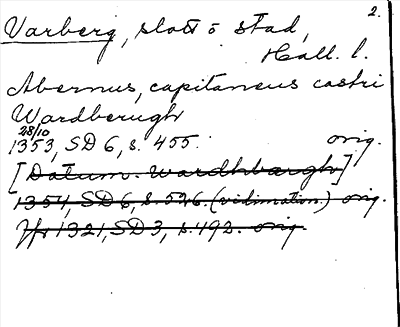 2.
Varberg, slott o stad,
Hall. l.
Abernus, capitaneus castri
Wardberugh
28/10
1353, SD 6, s. 455. orig.
[Datum. Wardhbærgh]
1354, SD 6, s. 526. (vidimation.) orig.
Jfr 1321, SD 3, s. 492. orig.